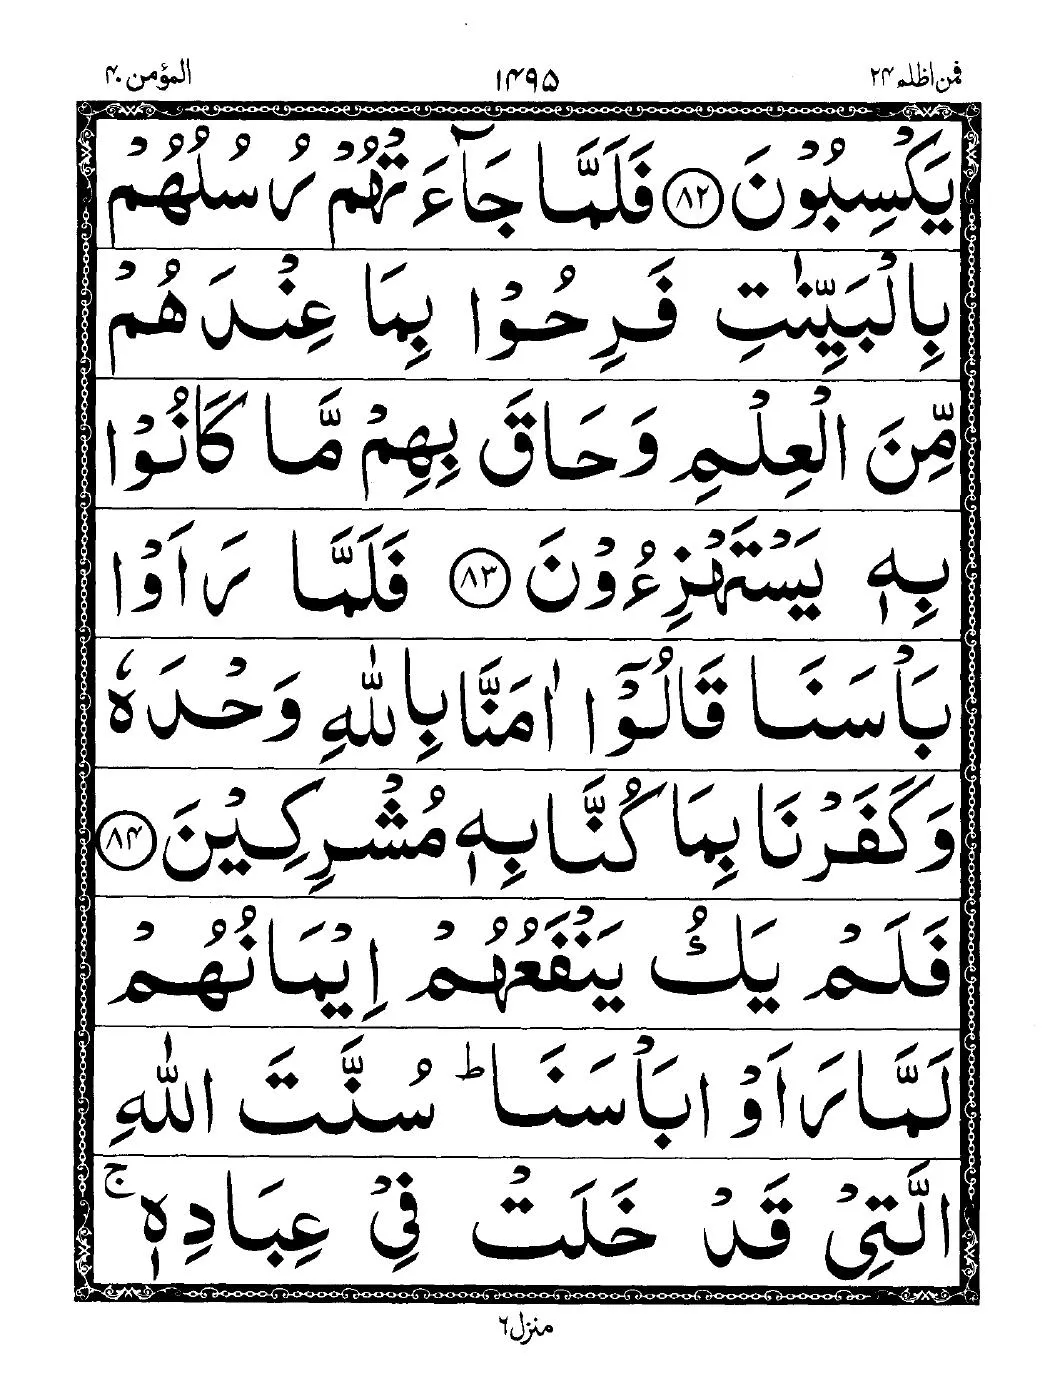 فمن اظلم ۲۴
۱۴۹۵
المؤمن ۴۰
يَكْسِبُوْنَ ﴿۸۲﴾ فَلَمَّا جَآءَتْهُمْ رُسُلُهُمْ
بِالْبَيِّنٰتِ فَرِحُوْا بِمَا عِنْدَهُمْ
مِّنَ الْعِلْمِ وَحَاقَ بِهِمْ مَّا كَانُوْا
بِهٖ يَسْتَهْزِءُوْنَ ﴿۸۳﴾ فَلَمَّا رَاَوْا
بَاْسَنَا قَالُوْٓا اٰمَنَّا بِاللّٰهِ وَحْدَهٗ
وَكَفَرْنَا بِمَا كُنَّا بِهٖ مُشْرِكِيْنَ ﴿۸۴﴾
فَلَمْ يَكُ يَنْفَعُهُمْ اِيْمَانُهُمْ
لَمَّا رَاَوْا بَاْسَنَا ؕ سُنَّتَ اللّٰهِ
الَّتِيْ قَدْ خَلَتْ فِيْ عِبَادِهٖ ۚ
منزل ۶